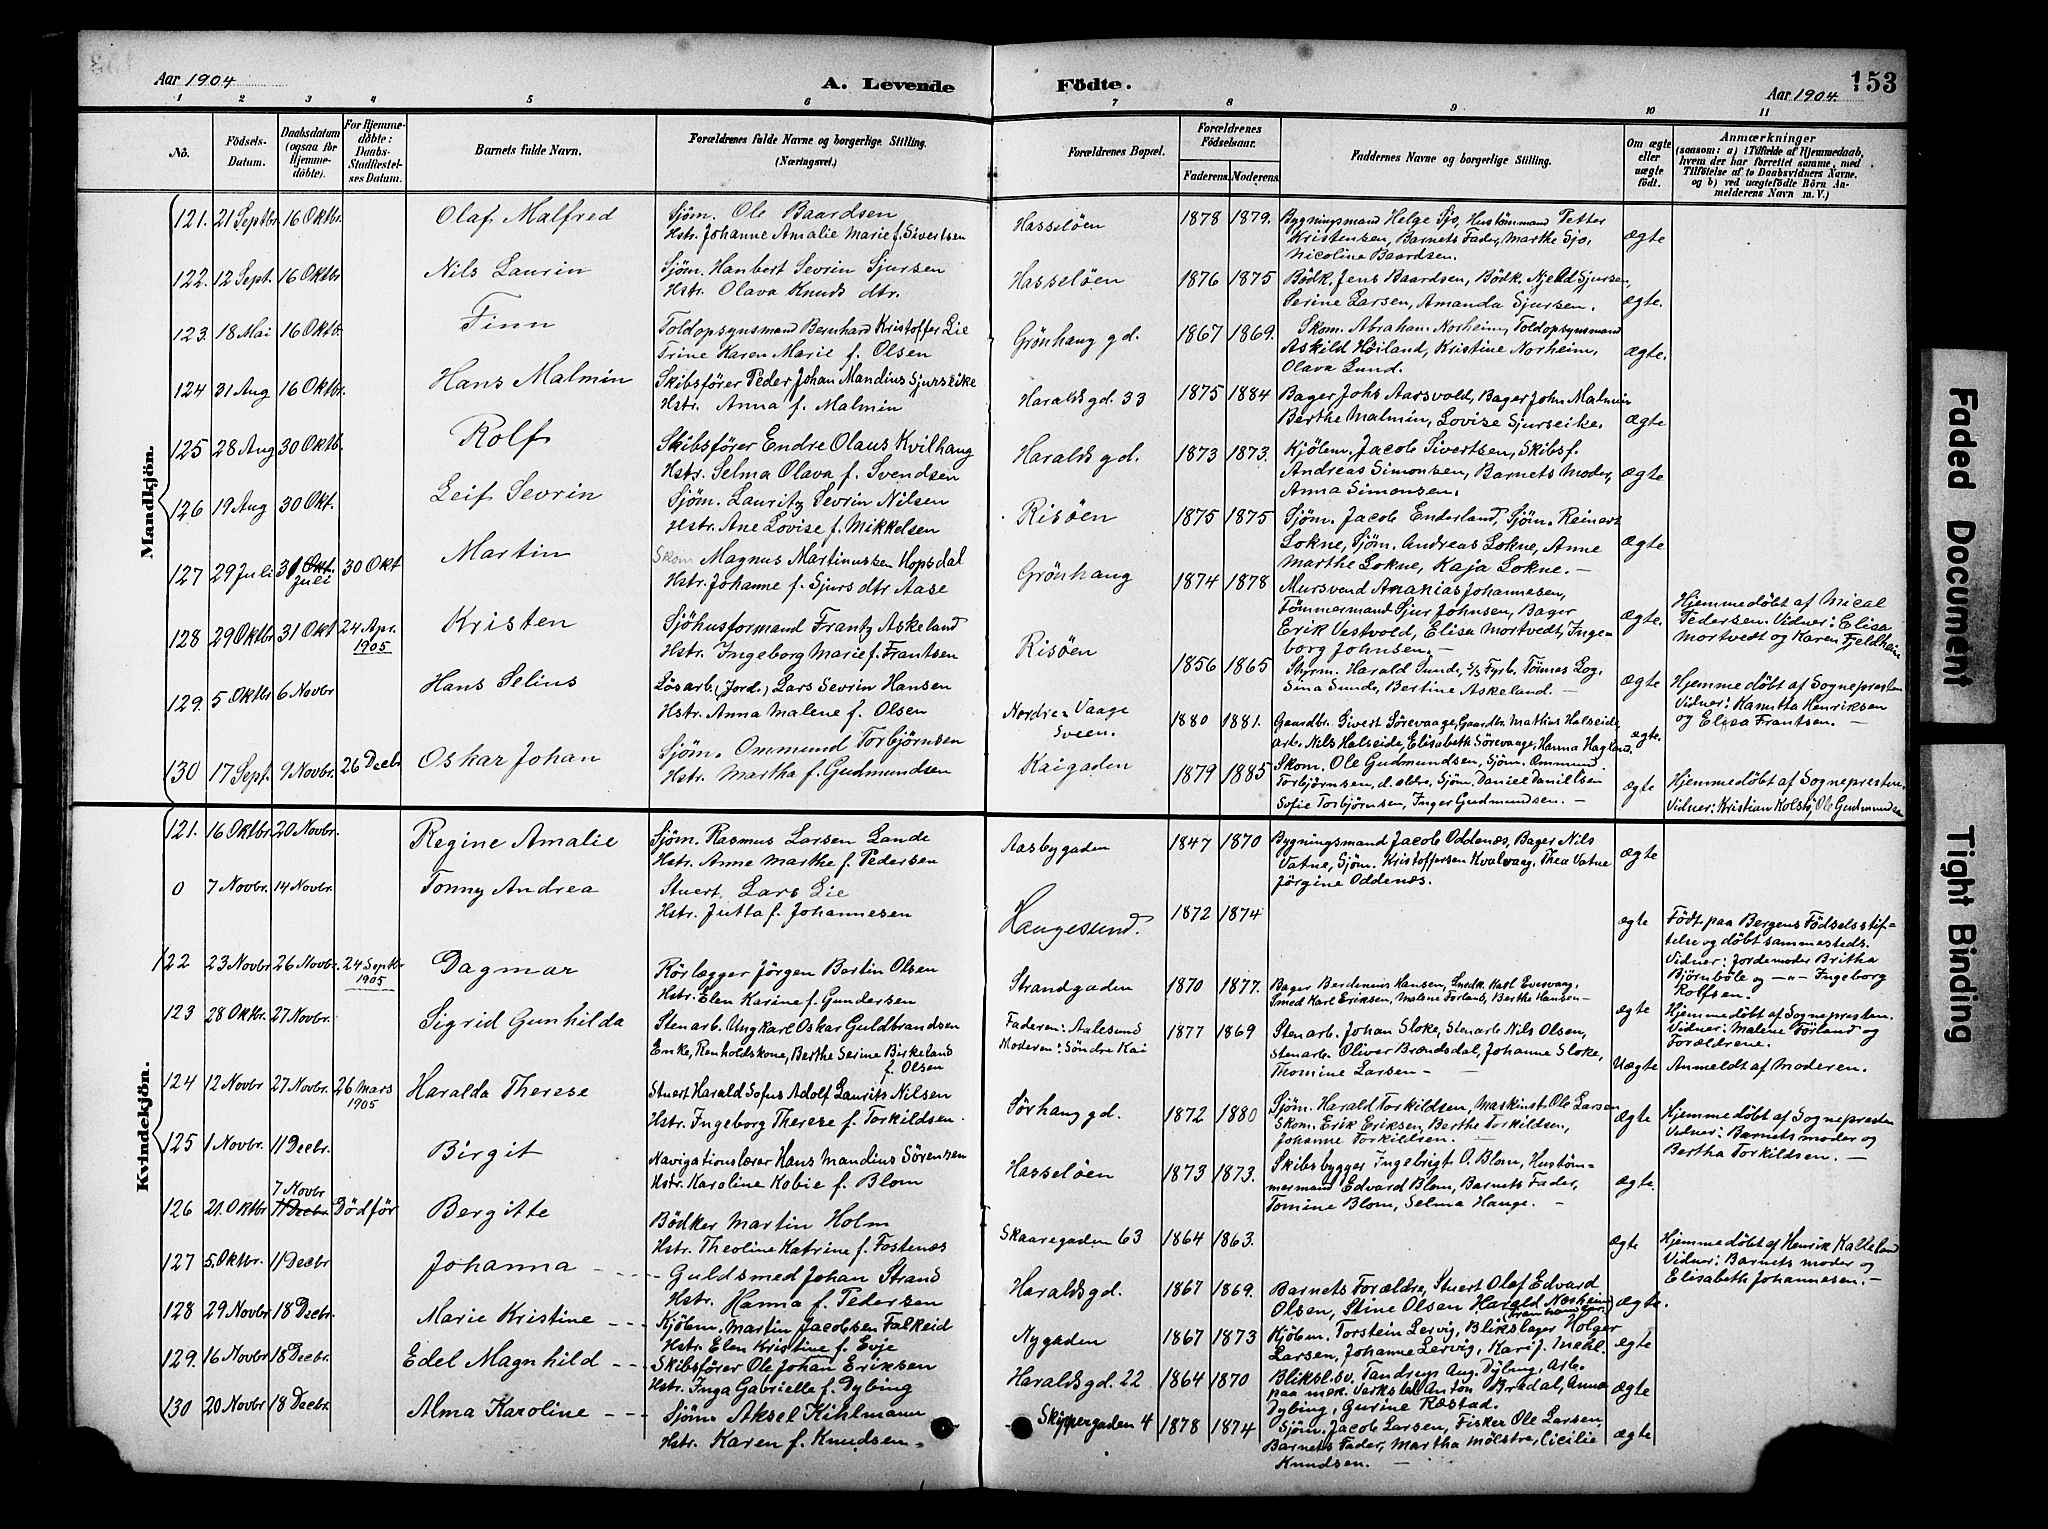 Aar 1904
A. Levende
Födte.
Aar 1904.
153
1 2 3 4 5 6 7 8 9 10 11
No.
Födsels-
Datum.
Daabsdatum
(ogsaa for
Hjemme-
döbte).
For Hjemme-
döbte:
Daabs-
Stadfæstel-
ses Datum.
Barnets fulde Navn.
Forældrenes fulde Navne og borgerlige Stilling.
(Næringsvei.)
Forældrenes Bopæl.
Forældrenes
Födselsaar.
Faderens. Moderens.
Faddernes Navne og borgerlige Stilling.
Om ægte
eller
uægte
födt.
Anmærkninger
(saasom: a) i Tilfælde af Hjemmedaab,
hvem der har forrettet samme, med
Tilföielse af to Daabsvidners Navne.
og b) ved uægtefödte Börn An-
melderens Navn m. V.)
Mandkjön.
121. 21 Septbr 16 Oktbr. Olaf Malfred Sjöm. Ole Baardsen
Hstr. Johanne Amalie Marie f. Sivertsen
Hasselöen 1878 1879. Bygningsmand Helge Sjo, Hustömmand Petter
Kristensen, Barnets Fader, Marthe Sjo,
Nicoline Baardsen. ægte
122. 12 Sept. 16 Oktbr. Nils Laurin Sjöm. Hanbert Sevrin Sjursen
Hstr. Olava Knuds dtr.
Hasselöen 1876 1875 Bödk. Jens Baardsen, Bödk. Njeld Sjursen,
Serine Larsen, Amanda Sjursen. ægte.
123. 18 Mai 16 Oktbr. Finn Toldopsynsmand Bernhard Kristoffer Lie
Trine Karen Marie f. Olsen
Grönhang gd. 1867 1869. Skom. Abraham Norheim, Toldopsynsmand
Askild Höiland, Kristine Norheim,
Olava Lund. ægte.
124 31 Aug 16 Oktbr. Hans Malmin Skibsförer Peder Johan Mandius Sjurseike
Hstr. Anna f. Malmin
Haralds gd. 33 1875 1884 Bager Johs Aarsvold, Bager John Malmin
Berthe Malmin, Lovise Sjurseike. ægte
125 28 Aug 30 Oktb. Rolf Skibsförer Endre Olaus Kvilhaug
Hstr. Selma Olava f. Svendsen
Haralds gd. 1873 1873. Kjölem. Jacob Sivertsen, Skibsf.
Andreas Simonsen, Barnets Moder,
Anna Simonsen. ægte
126 19 Aug 30 Okt. Leif Sevrin Sjöm. Lauritz Sevrin Nilsen
Hstr. Ane Lovise f. Mikkelsen
Risöen 1875 1875 Sjöm. Jacob Enderland, Sjöm. Reinert
Lokne, Sjöm. Andreas Lokne, Anne
Marthe Lokne, Kaja Lokne. — ægte
127 29 Juli 31 Okt. Juli 30 Okt Martin Skom Magnus Martinussen Hopsdal
Hstr. Johanne f. Sjurs dtr Aase
Grönhang 1874 1878 Mursvend Ananias Johannesen,
Tömmermand Sjur Johnsen, Bager
Erik Vestvold, Elisa Mortvedt, Inge-
borg Johnsen. — ægte.
Hjemmedöbt af Mical
Pedersen Vidner: Elisa
Mortvedt og Karen Fjeldheim
128 29 Oktbr 31 Okt 24 Apr. 1905 Kristen Sjöhusformand Frantz Askeland
Hstr. Ingeborg Marie f. Frantsen
Risöen 1856 1865 Styrm. Harald Sunde, s/s Fyrb. Tönnes Log,
Sina Sunde, Bertine Askeland. — ægte
Hjemmedöbt af Sognepresten
Vidner: Kanutta Henriksen
og Elisa Frantsen. —
129. 5 Oktbr 6 Novbr. Hans Selius Lösarb. (Jord.) Lars Sevrin Hansen
Hstr. Anna Malene f. Olsen
Nordre Vaage
Sveen. 1880 1881. Gaardbr. Sivert Sörevaage, Gaardbr. Mathias Halseide
Arb. Nils Halseide, Elisabeth Sörevaage, Hanna Hagland. ægte.
130 17 Sept. 9 Novbr. 26 Decbr Oskar Johan Sjöm. Ommund Torbjörnsen
Hstr. Martha f. Gudmundsen
Kaigaden 1879 1885 Skom. Ole Gudmundsen, Sjöm. Ommund
Torbjörnsen, d. eldre, Sjöm. Daniel Daniellsen
Sofie Torbjörnsen, Inger Gudmundsen. — ægte
Hjemmedöbt af Sognepresten.
Vidner: Kristian Kolstö, Ole Gudmundsen
Kvindekjön.
121. 16 Oktbr. 20 Novbr. Regine Amalie Sjöm. Rasmus Larsen Lande
Hstr. Anne Marthe f. Pedersen
Aasbygaden 1847 1870 Bygningsmand Jacob Oddenæs, Bager Nils
Vatne, Sjöm. Kristoffersen Kvalvaag, Thea Vatne
Jörgine Oddenæs. ægte
0 7 Novbr. 14 Novbr. Tonny Andrea Stuert Lars Lie
Hstr. Jutta f. Johannesen
Haugesund. 1872 1874 ægte
Födt paa Bergens Födselsstif-
telse og döbt sammesteds.
Vidner: Jordemoder Britha
Björnböle og —"— Ingeborg
Rolfsen.
122 23 Novbr 26 Novbr. 24 Septbr 1905 Dagmar Rörlægger Jörgen Bertin Olsen
Hstr. Elen Karine f. Gundersen
Strandgaden 1870 1877. Bager Berdinius Hansen, Smedk. Karl Eversvaag,
Smed Karl Eriksen, Malene Förland, Berthe Hansen — ægte
Hjemmedöbt af Sognepresten.
Vidner: Malene Förland og
Forældrene.
123 28 Oktbr. 27 Novbr. Sigrid Gunhilda Stenarb. Ungkarl Oskar Guldbrandsen
Enke, Renholdskone, Berthe Serine Birkeland
f. Olsen
Faderen: Aalesund
Moderen: Söndre Kai 1877 1869 Stenarb. Johan Sloke, Stenarb Nils Olsen,
Stenarb. Oliver Brændsdal, Johanne Sloke,
Thomine Larsen — Uægte Anmeldt af Moderen.
124 12 Novbr 27 Novbr. 26 Mars 1905 Haralda Therese Stuert Harald Sofus Adolf Laurits Nilsen
Hstr. Ingeborg Therese f. Torkildsen.
Sörhang gd. 1872 1880 Sjöm. Harald Torkildsen, Maskinst. Ole Larsen
Skom. Erik Eriksen, Berthe Torkildsen,
Johanne Torkildsen. — ægte
Hjemmedöbt af Sognepresten
Vidner: Barnets Moder og
Bertha Torkildsen. —
125 1 Novbr. 11 Decbr. Birgit Navigationslærer Hans Mandius Sörensen
Hstr. Karoline Kobie f. Blom
Hasselöen 1873 1873. Skibsbygger Ingebrigt O. Blom, Hustöm-
mermand Edvard Blom, Barnets Fader,
Tomine Blom, Selma Hauge. — ægte.
126 21. Oktbr 7 Novbr 11 Decbr. Dödför Bergitte Bödker Martin Holm
Hstr. Theoline Katrine f. Fostenæs
Skaaregaden 63 1864 1863. ægte
Hjemmedöbt af Henrik Kalleland
Vidner: Barnets moder og
Elisabeth Johannesen. —
127 5. Oktbr. 11 Decbr Johanna Guldsmed Johan Strand
Hstr. Hanna f. Pedersen
Haralds gd. 1867 1869. Barnets Forældre, Stuert Olaf Edvard
Olsen, Stine Olsen Harald Norheim ægte.
128 29 Novbr 18 Decbr. Marie Kristine Kjöbm. Martin Jacobsen Falkeid
Hstr. Elen Kristine f. Evje
Nygaden 1867 1873 Kjöbm. Torstein Lervig, Blikslager Holger
Larsen, Johanne Lervig, Kari J. Mehl. ægte
129. 16 Novbr 18 Decbr. Edel Magnhild Skibsförer Ole Johan Eriksen
Hstr. Inga Gabrielle f. Dybing
Haralds gd. 22 1864 1870 Bliksl.sv. Tandrup, Aug. Dybing, Arb.
paa mek. Verksted Anton Bredal, Anna
Dybing, Gurine Ræstad. ægte
130 20 Novbr 18 Decbr Alma Karoline Sjöm. Aksel Kihlmann
Hstr. Karen f. Knudsen
Skippergaden 4 1878 1874 Sjöm. Jacob Larsen, Fisker Ole Larsen
Barnets Fader, Martha Mölstre, Cicilie
Knudsen. — ægte
Faded Document
Tight Binding